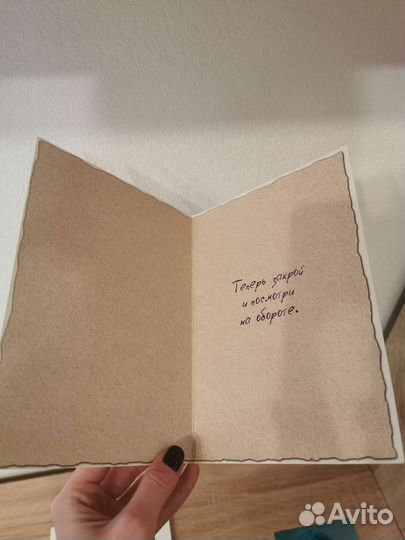 Теперь закрой
и посмотри
на обороте.
Avito